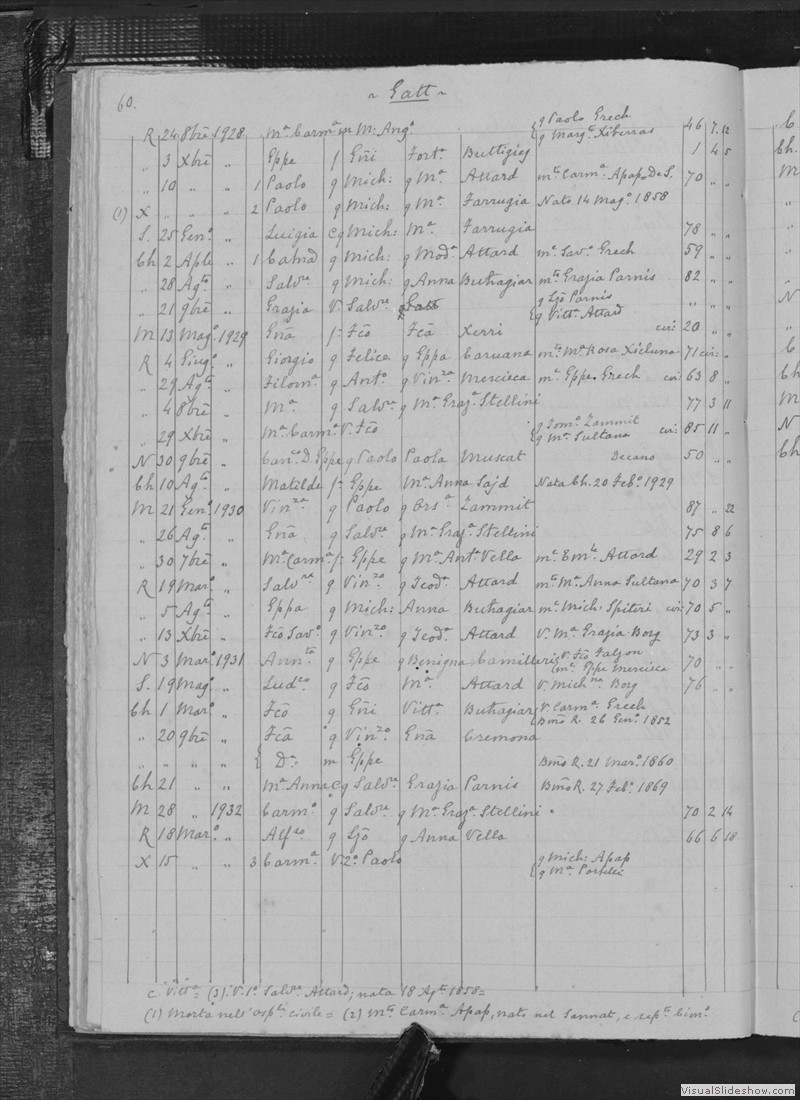 60. ~ Gatt ~
q Paolo Grech
R 24 8bre 1928 Mª Carmª m M: Angº { q Margª Xiberras 46 7 12
„ 3 Xbre „ Eppe f Gñi Fortª Buttigieg 1 4 5
„ 10 „ „ 1 Paolo q Mich: q Mª Attard mto Carmª Apap De S. 70 „ „
(1) X „ „ „ 2 Paolo q Mich: q Mª Farrugia Nato 14 Magº 1858
S. 25 Genº „ Luigia C q Mich: Mª Farrugia 78 „
Ch 2 Aple „ 1 q Mich: q Modª Attard mª Savº Grech 59 „ „
„ 28 Agto „ Salvre q Mich: q Anna Buhagiar mto Grazia Parnis 82 „ „
q Gjo Parnis
„ 21 9bre „ Grazia V. Salvre { q Vittª Attard „ „
M 13 Magº 1929 Gña f. Fco Fca Xerri civ: 20 „ „
R 4 Giugº „ Giorgio q Felice q Eppa Caruana mto Mª Rosa Xicluna 71 civ: „
„ 29 Agto „ Filomª q Antº q Vinzª Mercieca mª Eppe. Grech civ: 63 8 „
„ 4 8bre „ Mª q Salvre q Mª Grazª Stellini 77 3 11
q Tomº Zammit
„ 29 Xbre „ Mª Carmª V. Fco { q Mª Sultana civ: 85 11 „
N 30 9bre „ Canº D. Eppe q Paolo Paola Muscat Decano 50 „ „
Ch 10 Agto „ Matilde f. Eppe Mª Anna Sajd Nata Ch. 20 Febº 1929
M 21 Genº 1930 Vinzª q Paolo q Orsª Zammit 87 „ 22
„ 26 Agto „ Gña q Salvre q Mª Grazª Stellini 75 8 6
„ 30 7bre „ Mª Carmª f. Eppe q Mª Antª Vella mª Attard 29 2 3
R 19 Marº „ Salvre q Vinzo q Teodª Attard mto Mª Anna Sultana 70 3 7
„ 5 Agto „ Eppa q Mich: Anna Buhagiar mª Mich. Spiteri civ: 70 5 „
„ 13 Xbre „ Fco Savº q Vinzo q Teodª Attard V. Mª Grazia Borg 73 3 „
N 3 Marº 1931 Annta q Eppe q Benigna Camilleri { V. Fco Falzon
mª Eppe Mercieca 70 „ „
S. 19 Magº „ Ludco q Fco Mª Attard V. Michna Borg 76 „ „
Ch 1 Marº „ Fco q Gñi Vittª Buhagiar { V. Carmª Grech
Bmo R. 26 Genº 1852
„ 20 9bre „ Fca q Vinzo Gña Cremona
„ „ „ „ { Dª m Eppe Bmo R. 21 Marº 1860
Ch 21 „ „ Mª Anna C q Salvre Grazia Parnis Bmo R. 27 Febº 1869
M 28 „ 1932 Carmº q Salvre q Mª Grazª Stellini 70 2 14
R 18 Marº „ Alfzo q Gjo q Anna Vella 66 6 18
X 15 „ „ 3 Carmª V. 2º Paolo { q Mich: Apap
q Mª Portelli
c. Vittª = (3) V. 1º Salvre Attard; nata 18 Agto 1858 =
(1) Morta nell' ospte civile = (2) Mto Carmª Apap, nato nel Sannat, e septo Cimº
VisualSlideshow.com